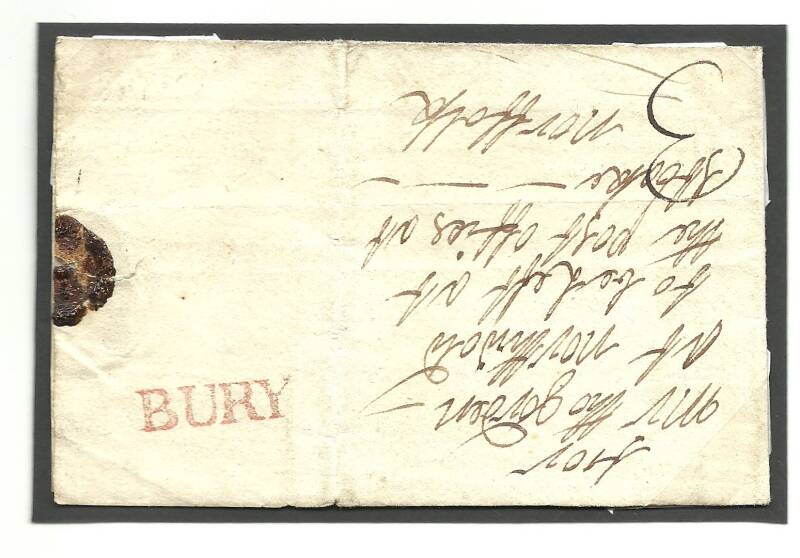 for
mr tho gorden
at northwold
to be Left at
the post offies at
Stoke
norffolk
3
BURY